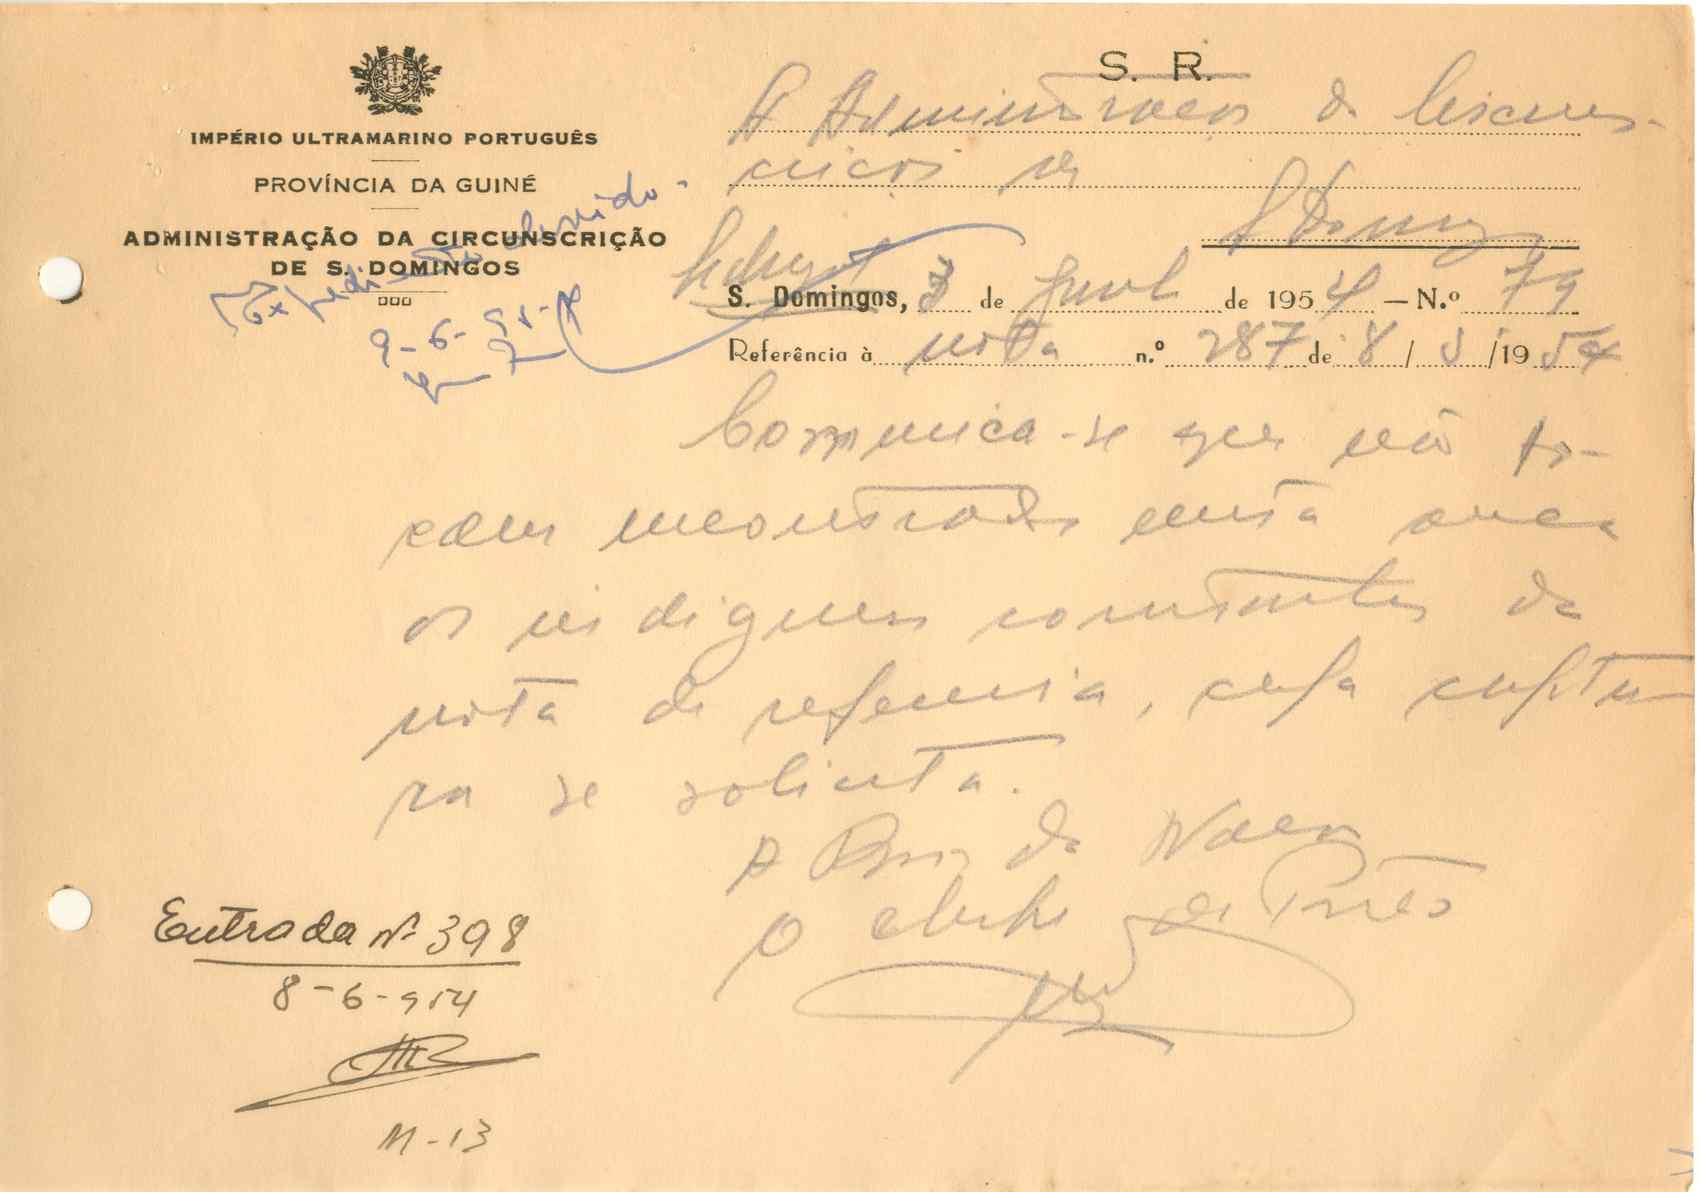 IMPÉRIO ULTRAMARINO PORTUGUÊS
PROVÍNCIA DA GUINÉ
ADMINISTRAÇÃO DA CIRCUNSCRIÇÃO
DE S. DOMINGOS
Expediente devido
9-6-954
S. R.
A Administração da Circuns-
crição de
S. Domingos
S. Domingos, 3 de Junho de 1954 — N.º 79
Referência à nota n.º 287 de 8 / 5 / 1954
Comunica-se que não fo-
ram encontrados nesta área
os indígenas constantes da
nota de referência, cuja captu-
ra se solicita.
A Bem da Nação
O Chefe de Posto
Entrada nº 398
8-6-954
M-13